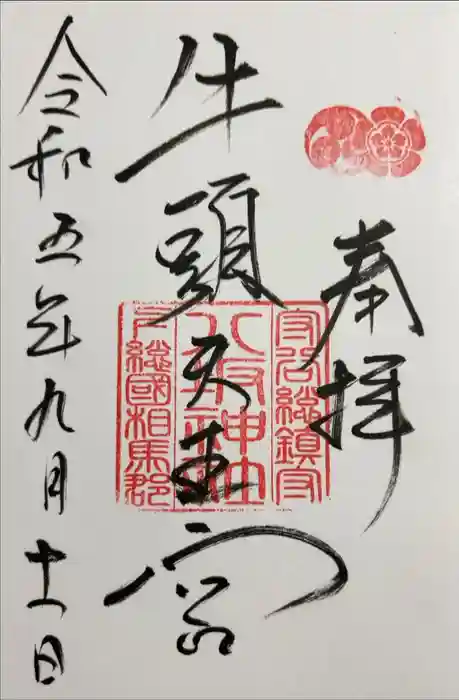 奉拝
牛頭天王宮
令和五年九月十一日
守谷総鎮守
八坂神社
下総國相馬郡